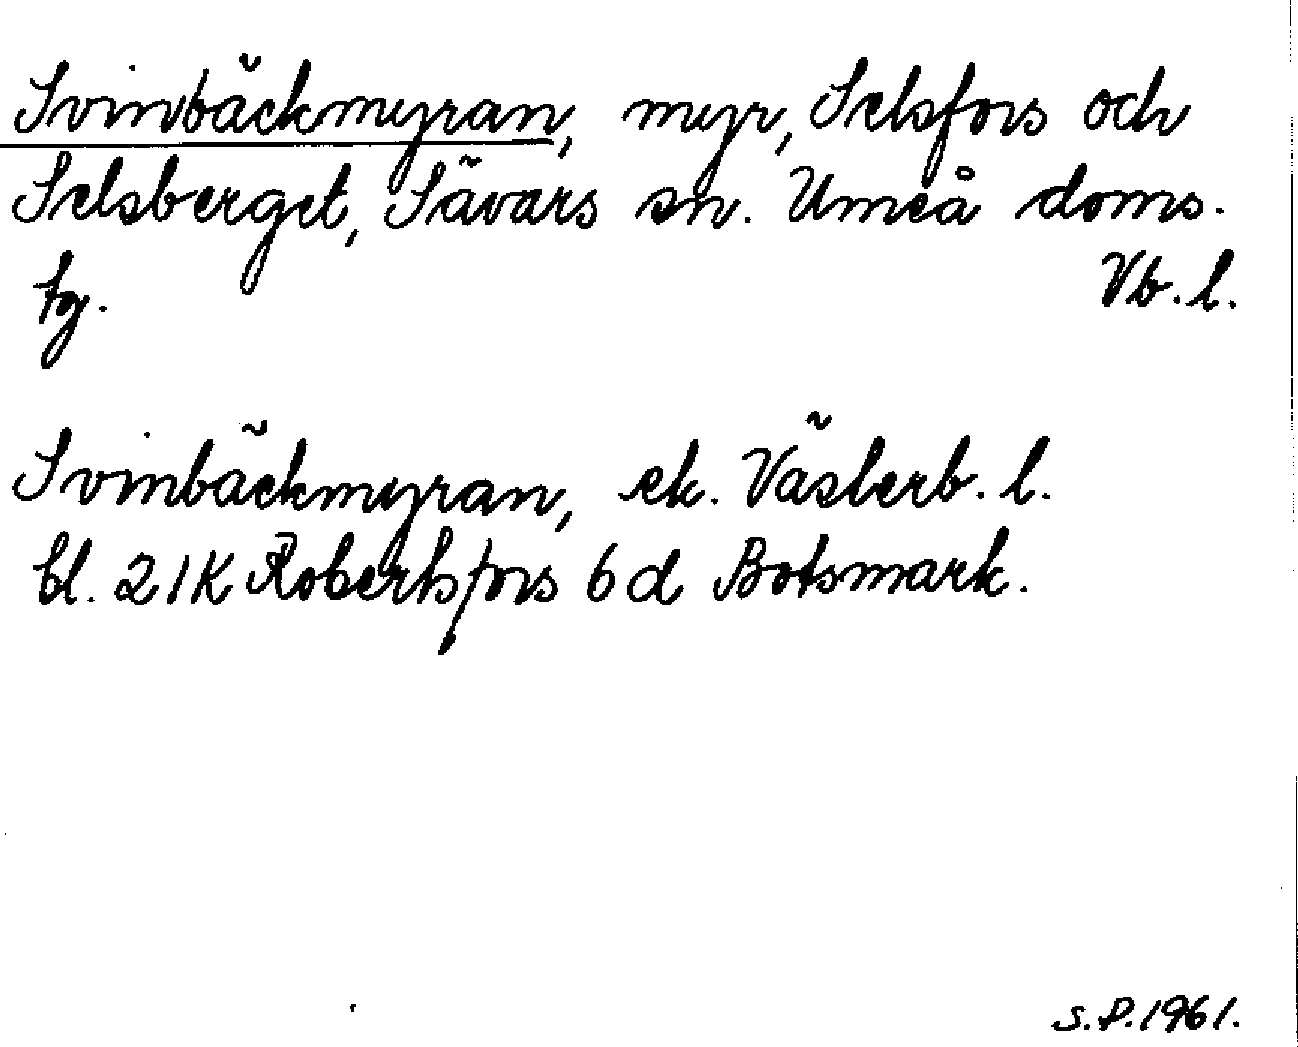 Svinbäckmyran, myr, Selsfors och
Selsberget, Sävars sn. Umeå doms.
tg. Vb. l.
Svinbäckmyran, ek. Västerb. l.
bl. 21K Robertsfors 6d Botsmark.
S.P. 1961.